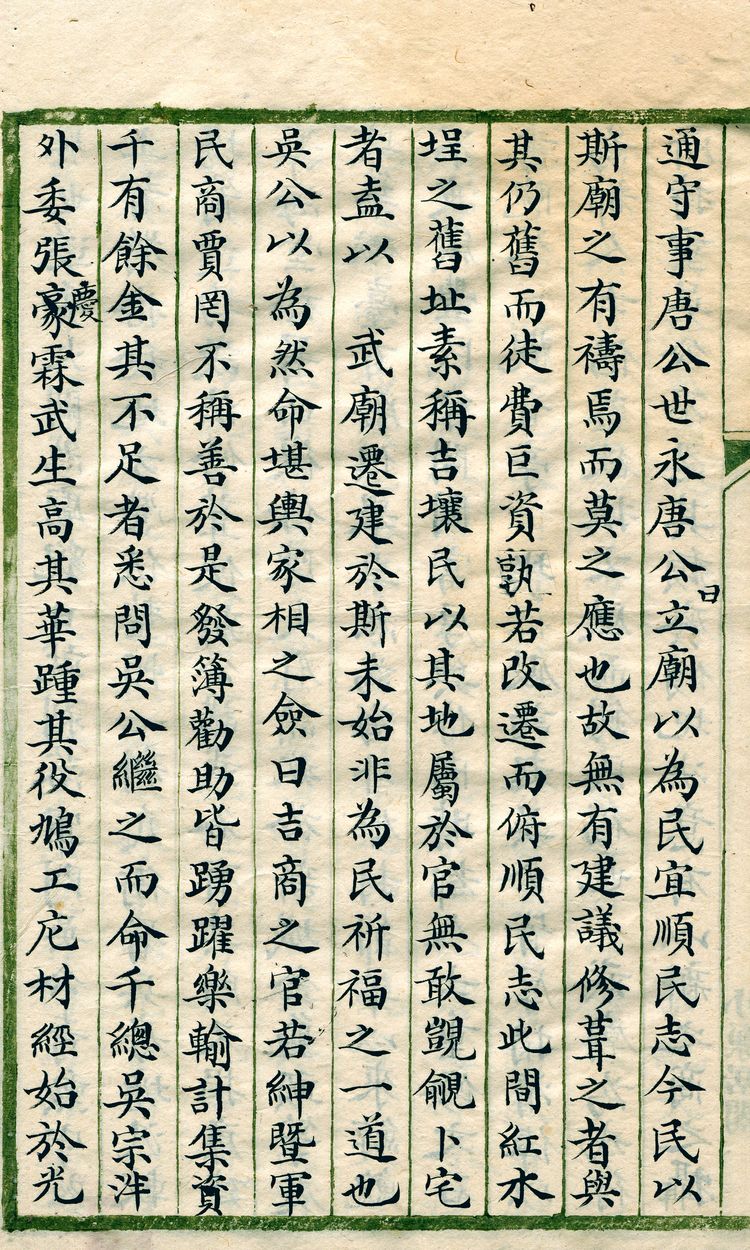 通守事唐公世永唐公曰立廟以為民宜順民志今民以
斯廟之有禱焉而莫之應也故無有建議修葺之者與
其仍舊而徒費巨資孰若改遷而俯順民志此間紅水
埕之舊址素稱吉壤民以其地屬於官無敢覬覦卜宅
者盍以　武廟遷建於斯未始非為民祈福之一道也
吳公以為然命堪輿家相之僉曰吉商之官若紳暨軍
民商賈罔不稱善於是發簿勸助皆踴躍樂輸計集資
千有餘金其不足者悉問吳公繼之而命千總吳宗泮
外委張慶霖武生高其華踵其役鳩工庀材經始於光